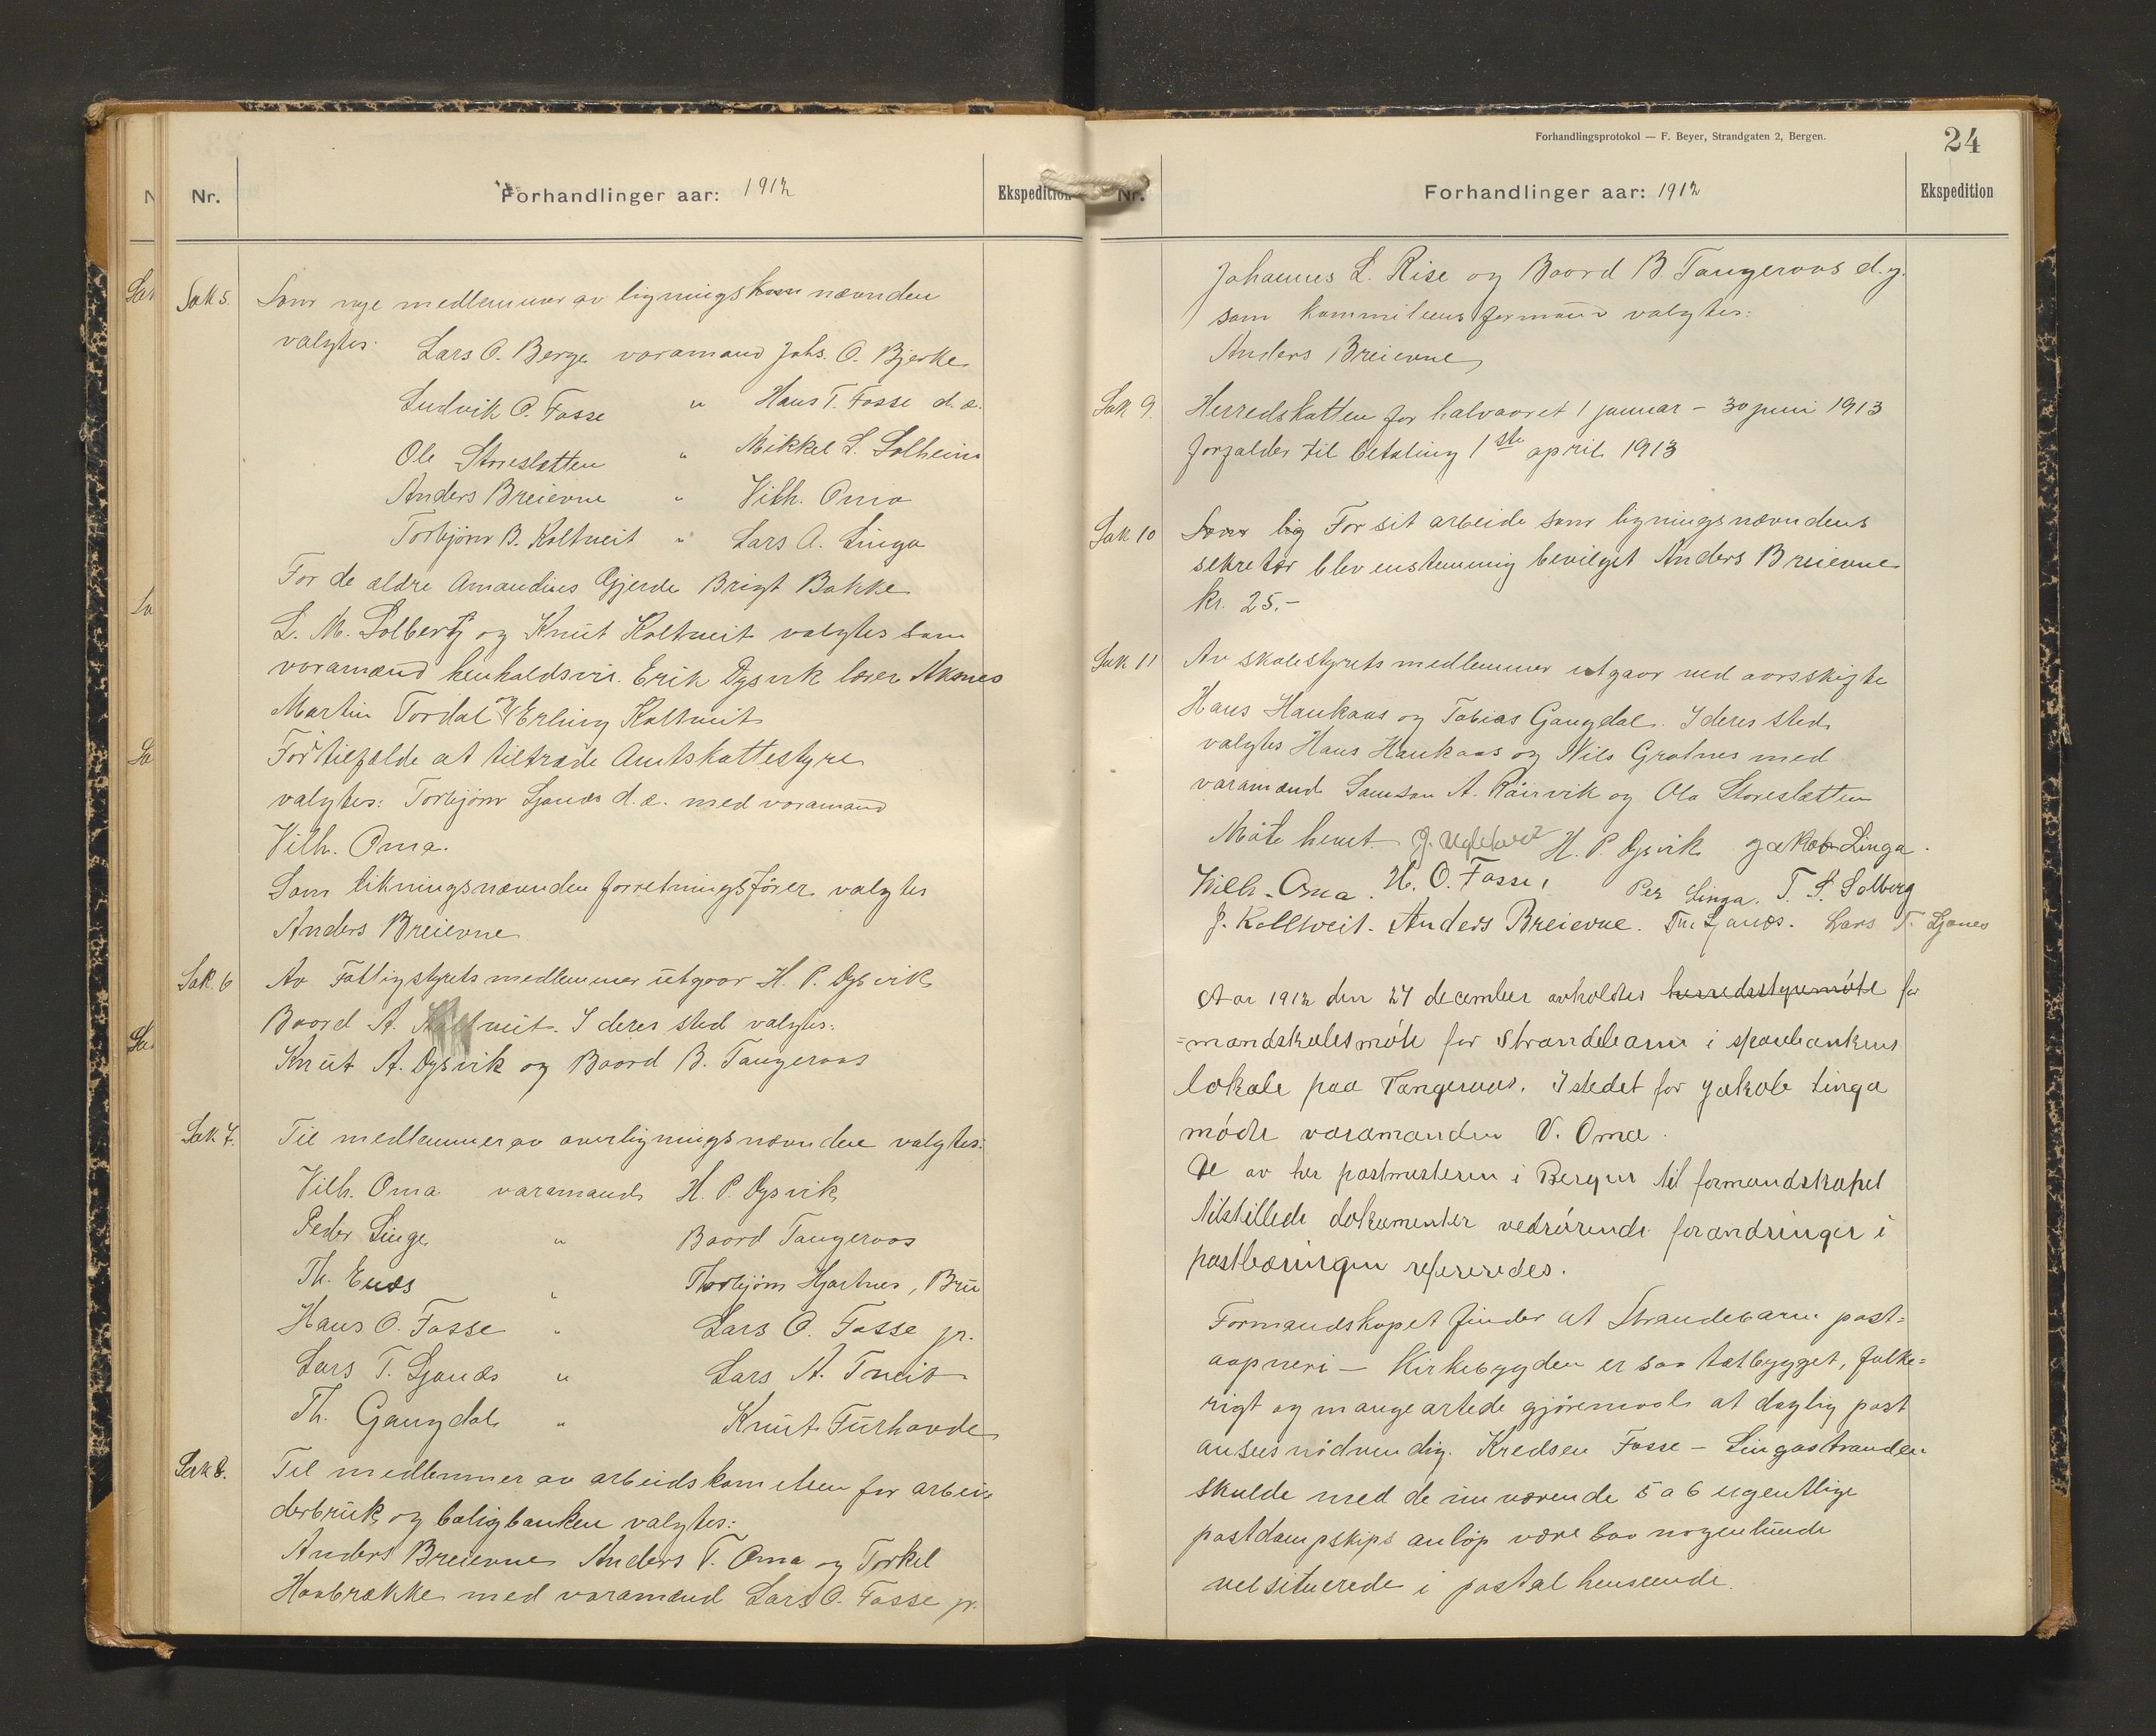 Nr.
Forhandlinger aar: 1912
Ekspedition
Sak 5. Som nye medlemmer av ligningskom nævnden
valgtes: Lars O. Berge varamand Johs. O. Bjerke
Ludvik O. Fosse " Hans T. Fosse d. æ.
Ole Storeslætten " Mikkel L. Solheim
Anders Breievne " Vilh. Oma
Torbjörn B. Koltveit " Lars A. Linga
For de ældre Amandius Gjerde Brigt Bakke
L. M. Solberg og Knut Koltveit valgtes som
varamænd henholdsvis. Erik Dysvik lærer Aksnes
Martin Tordal og Erling Koltveit
For tilfælde at tiltræde Amtskattestyre
valgtes: Torbjörn Ljonæs d. æ. med varamand
Vilh. Oma.
Som likningsnævnden forretningsförer valgtes
Anders Breievne
Sak. 6 Av Fattigstyrets medlemmer utgaar H. P. Dysvik
Baard A. Koltveit. I deres sted valgtes:
Knut A. Dysvik og Baard B. Tangeraas
Sak 7. Til medlemmer av overligningsnævnden valgtes:
Vilh. Oma varamand H. P. Dysvik
Peder Linge " Baard Tangeraas
Th. Enæs " Thorbjörn Hjartnes, Bru
Hans O. Fosse " Lars O. Fosse jr.
Lars T. Ljonæs " Lars A. Tveit
Th. Gangdal " Knut Furhovde
Sak 8. Til medlemmer av arbeidskomiteen for arbei
derbruk og boligbanken valgtes:
Anders Breievne Anders T. Oma og Torkel
Haabrække med varamænd Lars O. Fosse jr.
Forhandlingsprotokol — F. Beyer, Strandgaten 2, Bergen.
24
Nr.
Forhandlinger aar: 1912
Ekspedition
Johannes L. Rise og Baard B. Tangeraas d. y.
som komiteens formand valgtes:
Anders Breievne
Sak 9. Herredskatten for halvaaret 1 januar – 30 juni 1913
forfalder til betaling 1ste april 1913
Sak 10 Som lig For sit arbeide som ligningsnævndens
sekretær blev enstemmig bevilget Anders Breievne
kr. 25.–
Sak 11 Av skolestyrets medlemmer utgaar ved aarsskifte
Hans Haukaas og Tobias Gangdal. I deres sted
valgtes Hans Haukaas og Nils Grotnes med
varamænd Samson A. Röirvik og Ola Storeslætten
Möte hevet. H. P. Dysvik Jakob Linga.
Vilh. Oma. H. O. Fosse, Per Linga. T. L. Solberg
J. Kolltveit. Anders Breievne. Th. Ljonæs. Lars T. Ljones
Aar 1912 den 27 december avholdtes herredsstyremöte for
=mandskabsmöte for Strandebarm i sparebankens
lokale paa Tangeraas. I stedet for Jakob Linga
mödte varamanden V. Oma.
De av her postmesteren i Bergen til formandskapet
tilstillede dokumenter vedrörende forandringer i
postbæringen refereredes.
Formandskapet finder at Strandebarm post=
aapneri – Kirkebygden er saa tætbygget, folke=
rigt og mangeartede gjöremaal at daglig post
ansees nödvendig. Kredsen Fosse – Lingastranden
skulde med de nuværende 5 a 6 ugentlige
postdampskips anlöp være saa nogenlunde
vel situerede i postal henseende.